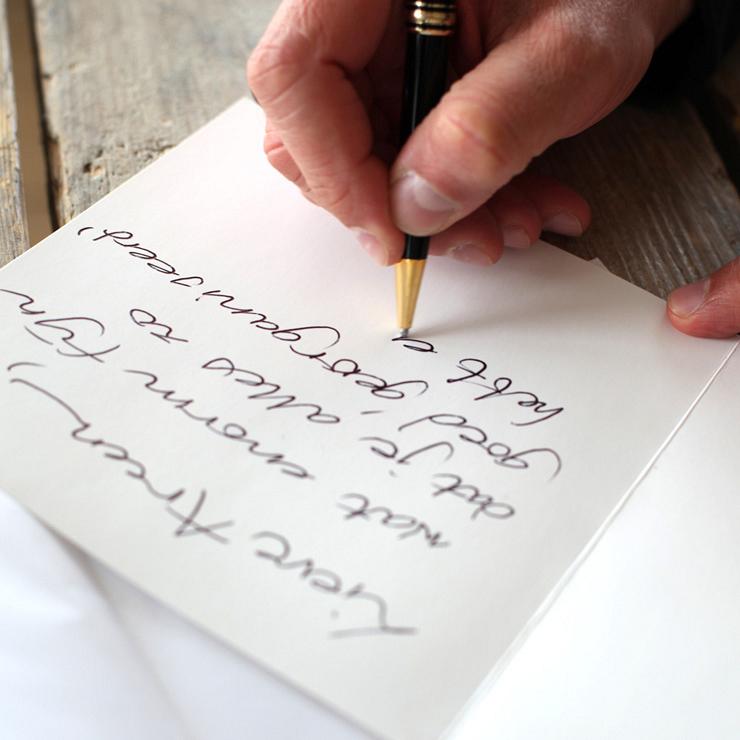 Lieve Arien,
Wat enorm fijn
dat je alles zo
goed georganiseerd
hebt e